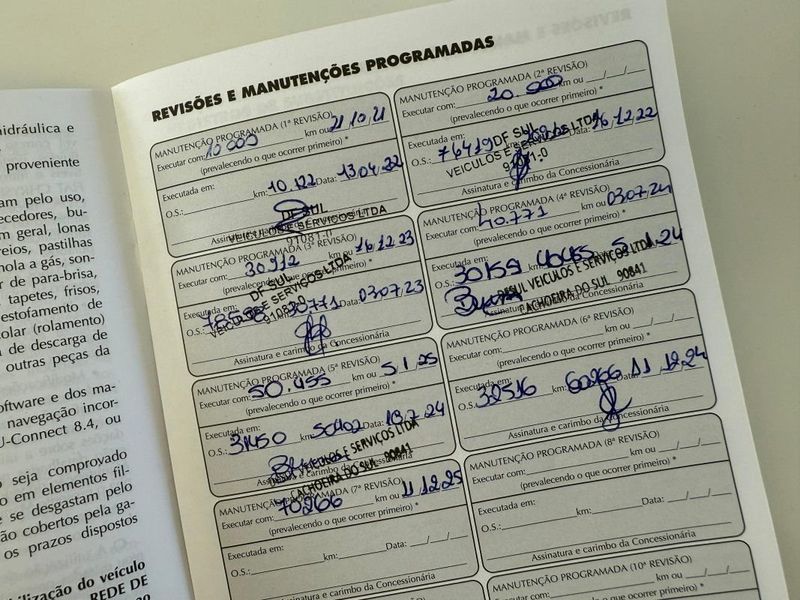 hidráulica e
proveniente
am pelo uso,
ecedores, bu-
m geral, lonas
reios, pastilhas
nola a gás, son-
r de para-brisa,
tapetes, frisos,
estofamento de
colar (rolamento)
a de descarga de
outras peças da
oftware e dos ma-
navegação incor-
U-Connect 8.4, ou
o seja comprovado
o em elementos fil-
e se desgastam pelo
ão cobertos pela ga-
os prazos dispostos
bilização do veículo
REDE DE
REVISÕES E MANUTENÇÕES PROGRAMADAS
MANUTENÇÃO PROGRAMADA (1ª REVISÃO)
Executar com: 10 000 km ou 21,10,21
(prevalecendo o que ocorrer primeiro) *
Executada em:
O.S.: km: 10.122 Data: 13.04.22
DF SUL
VEICULOS E SERVIÇOS LTDA
91081-0
MANUTENÇÃO PROGRAMADA (2ª REVISÃO)
Executar com: 20.000 km ou __/__/__
(prevalecendo o que ocorrer primeiro) *
Executada em:
O.S.: 76419 Data: 16.12.22
DF SUL
VEICULOS E SERVIÇOS LTDA
Assinatura e carimbo da Concessionária
MANUTENÇÃO PROGRAMADA (3ª REVISÃO)
Executar com: 30.912 km ou 16.12.23
(prevalecendo o que ocorrer primeiro) *
Executada em:
O.S.: 0307,23
DF SUL
VEICULOS E SERVIÇOS LTDA
Assinatura e carimbo da Concessionária
MANUTENÇÃO PROGRAMADA (4ª REVISÃO)
Executar com: 40.771 km ou 0307,24
(prevalecendo o que ocorrer primeiro) *
Executada em:
O.S.: 30159 5.1.24
DFSUL VEICULOS E SERVIÇOS LTDA
CACHOEIRA DO SUL 90841
MANUTENÇÃO PROGRAMADA (5ª REVISÃO)
Executar com: 50.455 km ou 5.1.25
(prevalecendo o que ocorrer primeiro) *
Executada em:
O.S.: 31450 km: 50402 Data: 18,7,24
VEICULOS E SERVIÇOS LTDA
CACHOEIRA DO SUL 90841
MANUTENÇÃO PROGRAMADA (6ª REVISÃO)
Executar com: km ou __/__/__
(prevalecendo o que ocorrer primeiro) *
Executada em:
O.S.: 32516 km: 60266 Data: 11,12,24
Assinatura e carimbo da Concessionária
MANUTENÇÃO PROGRAMADA (7ª REVISÃO)
Executar com: 70266 km ou 11,12,25
(prevalecendo o que ocorrer primeiro) *
Executada em:
O.S.: km: Data: __/__/__
Assinatura e carimbo da Concessionária
MANUTENÇÃO PROGRAMADA (8ª REVISÃO)
Executar com: km ou __/__/__
(prevalecendo o que ocorrer primeiro) *
Executada em:
O.S.: km: Data: __/__/__
Assinatura e carimbo da Concessionária
MANUTENÇÃO PROGRAMADA (9ª REVISÃO)
Executar com: km ou __/__/__
(prevalecendo o que ocorrer primeiro) *
MANUTENÇÃO PROGRAMADA (10ª REVISÃO)
Executar com: km ou __/__/__
(prevalecendo o que ocorrer primeiro) *